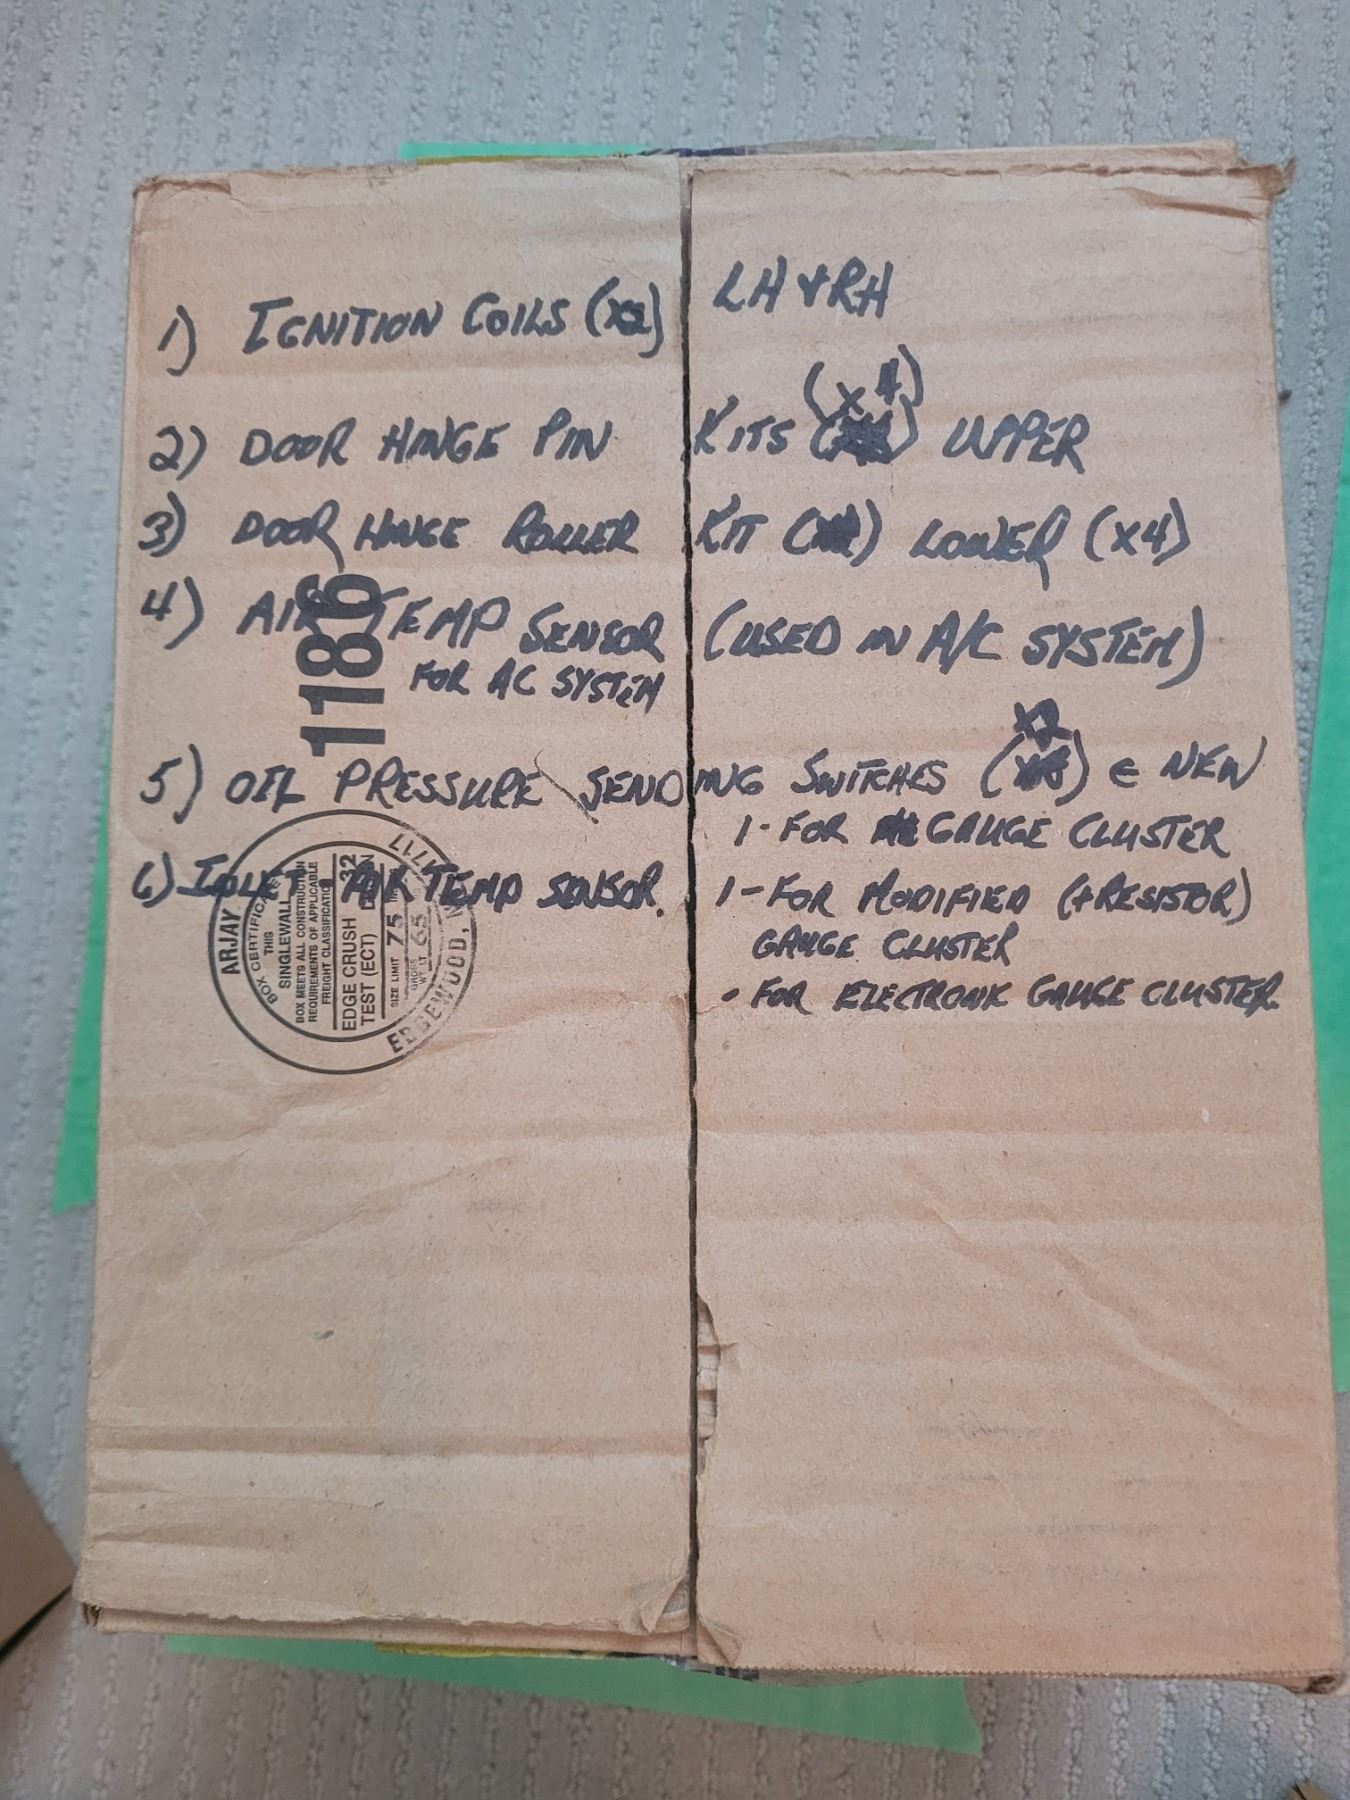 1) IGNITION COILS (X2) LH & RH
2) DOOR HINGE PIN KITS (X4) UPPER
3) DOOR HINGE ROLLER KIT LOWER (X4)
4) AIR TEMP SENSOR (USED IN A/C SYSTEM)
FOR AC SYSTEM
5) OIL PRESSURE SENDING SWITCHES (X2) ∈ NEW
1-FOR GAUGE CLUSTER
6) INLET AIR TEMP SENSOR.
1-FOR MODIFIED (+RESISTOR)
GAUGE CLUSTER
- FOR ELECTRONIC GAUGE CLUSTER
1186
ARJAY
BOX CERTIFICATE
THIS
SINGLEWALL
BOX MEETS ALL CONSTRUCTION
REQUIREMENTS OF APPLICABLE
FREIGHT CLASSIFICATION
EDGE CRUSH 32
TEST (ECT)
SIZE LIMIT 75
GROSS WT LT 65
EDGEWOOD,